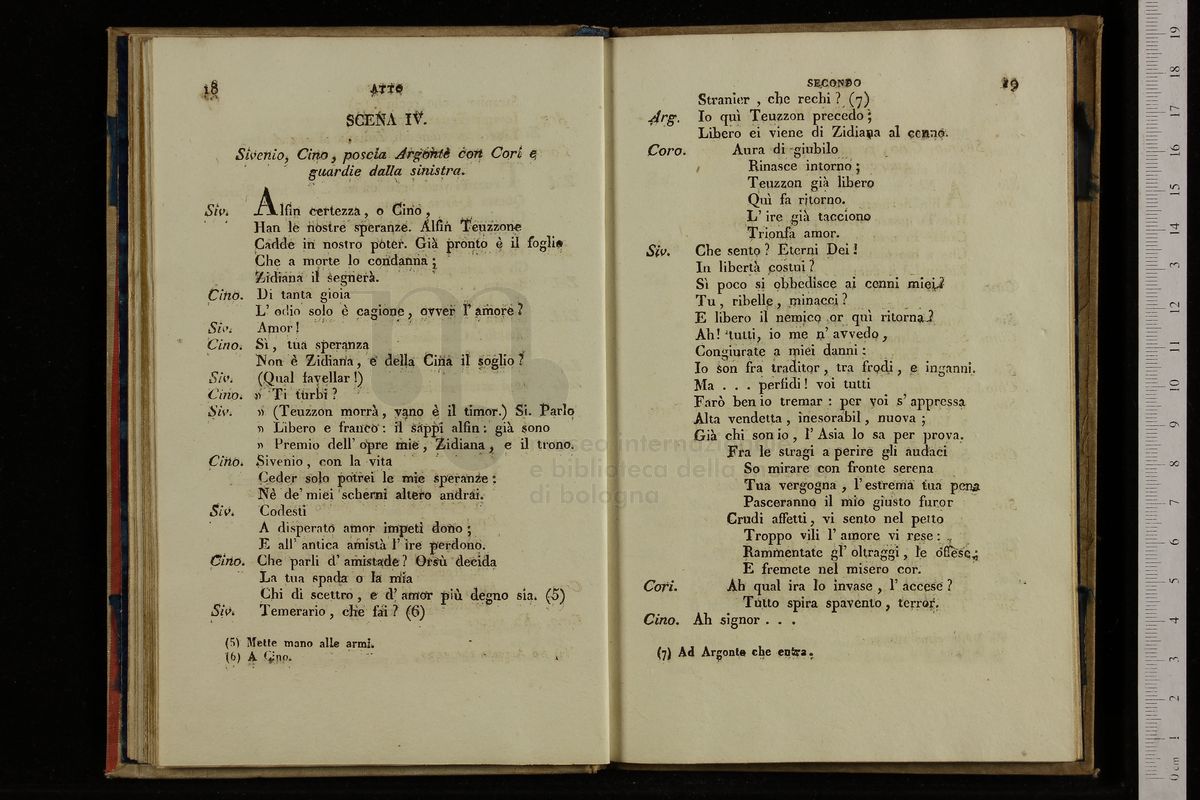 18 ATTO
SCENA IV.
Sivenio, Cino, poscia Argonte con Cori e
guardie dalla sinistra.
Siv. Alfin certezza, o Cino,
Han le nostre speranze. Alfin Teuzzone
Cadde in nostro poter. Già pronto è il foglio
Che a morte lo condanna;
Zidiana il segnerà.
Cino. Di tanta gioia
L' odio solo è cagione, ovver l' amore?
Siv. Amor!
Cino. Sì, tua speranza
Non è Zidiana, e della Cina il soglio?
Siv. (Qual favellar!)
Cino. » Ti turbi?
Siv. » (Teuzzon morrà, vano è il timor.) Si. Parlo
» Libero e franco: il sappi alfin: già sono
» Premio dell' opre mie, Zidiana, e il trono.
Cino. Sivenio, con la vita
Ceder solo potrei le mie speranze:
Nè de' miei scherni altero andrai.
Siv. Codesti
A disperato amor impeti dono;
E all' antica amistà l' ire perdono.
Cino. Che parli d' amistade? Orsù decida
La tua spada o la mia
Chi di scettro, e d' amor più degno sia. (5)
Siv. Temerario, che fai? (6)
(5) Mette mano alle armi.
(6) A Cino.
SECONDO 19
Stranier, che rechi? (7)
Arg. Io quì Teuzzon precedo;
Libero ei viene di Zidiana al cenno.
Coro. Aura di giubilo
Rinasce intorno;
Teuzzon già libero
Quì fa ritorno.
L' ire già tacciono
Trionfa amor.
Siv. Che sento? Eterni Dei!
In libertà costui?
Sì poco si obbedisce ai cenni miei?
Tu, ribelle, minacci?
E libero il nemico or quì ritorna?
Ah! tutti, io me n' avvedo,
Congiurate a miei danni:
Io son fra traditor, tra frodi, e inganni.
Ma . . . perfidi! voi tutti
Farò ben io tremar: per voi s' appressa
Alta vendetta, inesorabil, nuova;
Già chi son io, l' Asia lo sa per prova.
Fra le stragi a perire gli audaci
So mirare con fronte serena
Tua vergogna, l' estrema tua pena
Pasceranno il mio giusto furor
Crudi affetti, vi sento nel petto
Troppo vili l' amore vi rese:
Rammentate gl' oltraggi, le offese;
E fremete nel misero cor.
Cori. Ah qual ira lo invase, l' accese?
Tutto spira spavento, terror.
Cino. Ah signor . . .
(7) Ad Argonte che entra.
museo internazionale
e biblioteca della
di bologna
0 cm 1 2 3 4 5 6 7 8 9 10 11 12 13 14 15 16 17 18 19